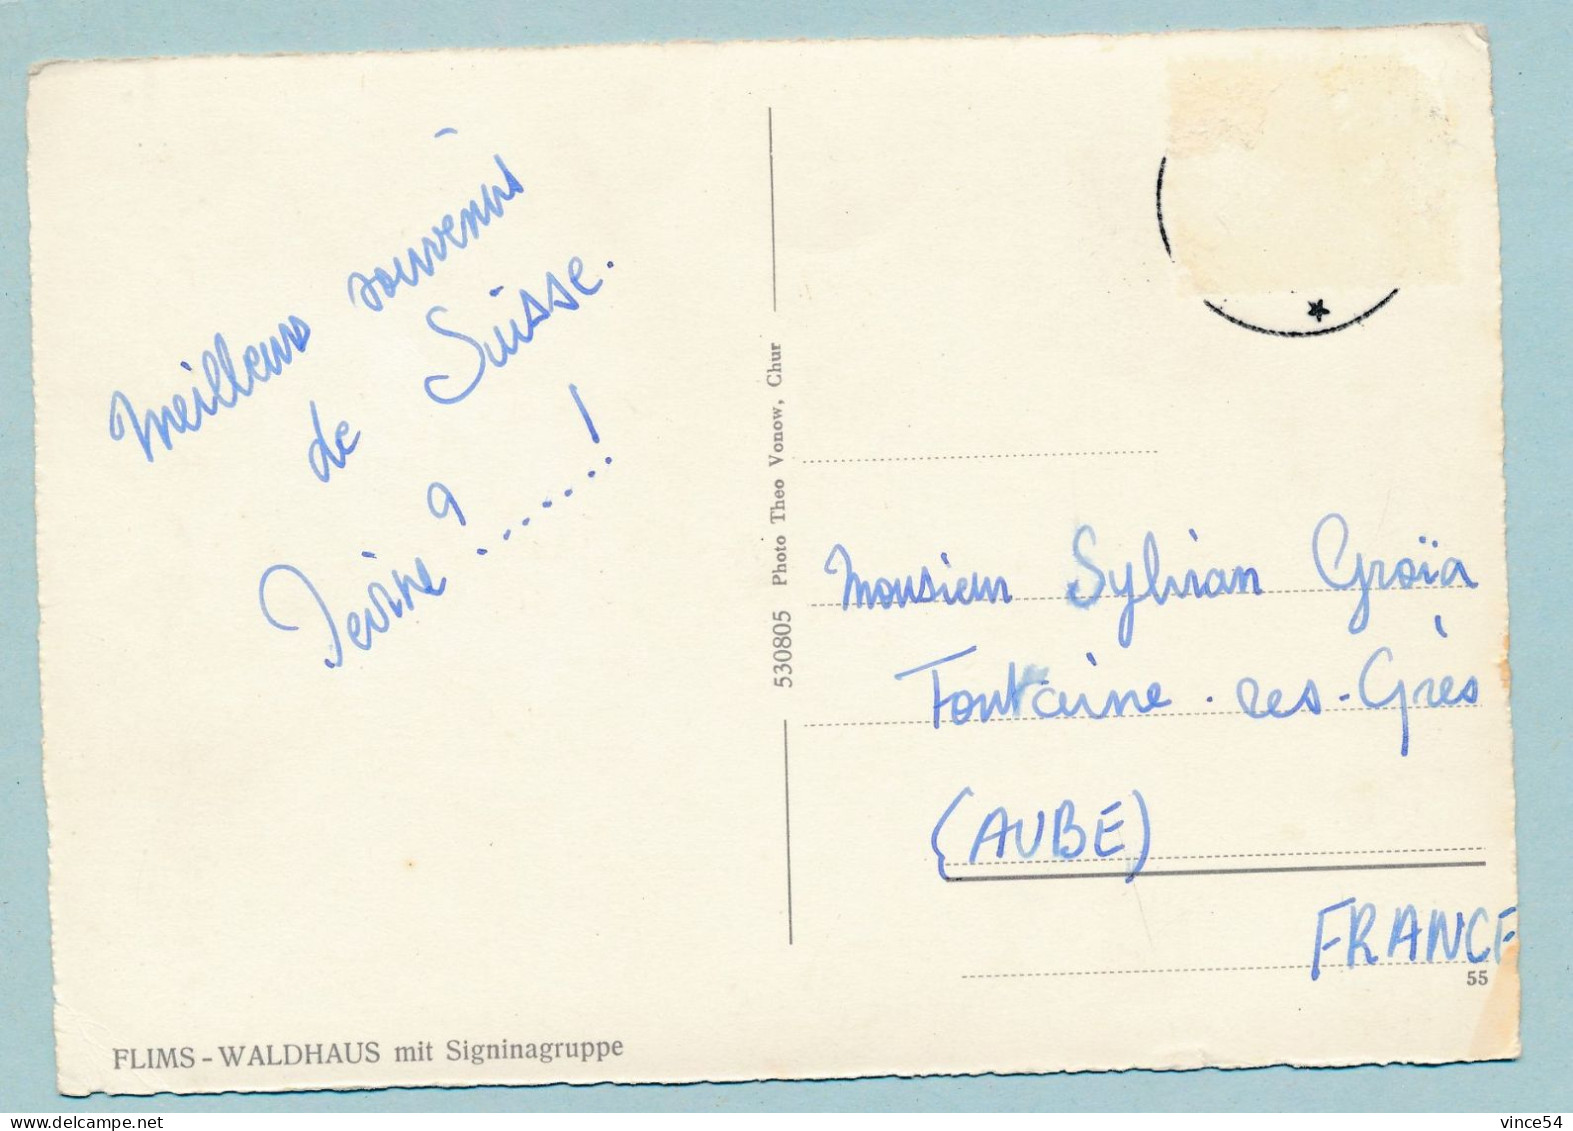 Meilleurs souvenirs
de Suisse.
Devine ? ........!
530805 Photo Theo Vonow, Chur
Monsieur Sylvian Groïa
Fontaine-les-Grès
(AUBE)
FRANCE
55
FLIMS - WALDHAUS mit Signinagruppe
vince54